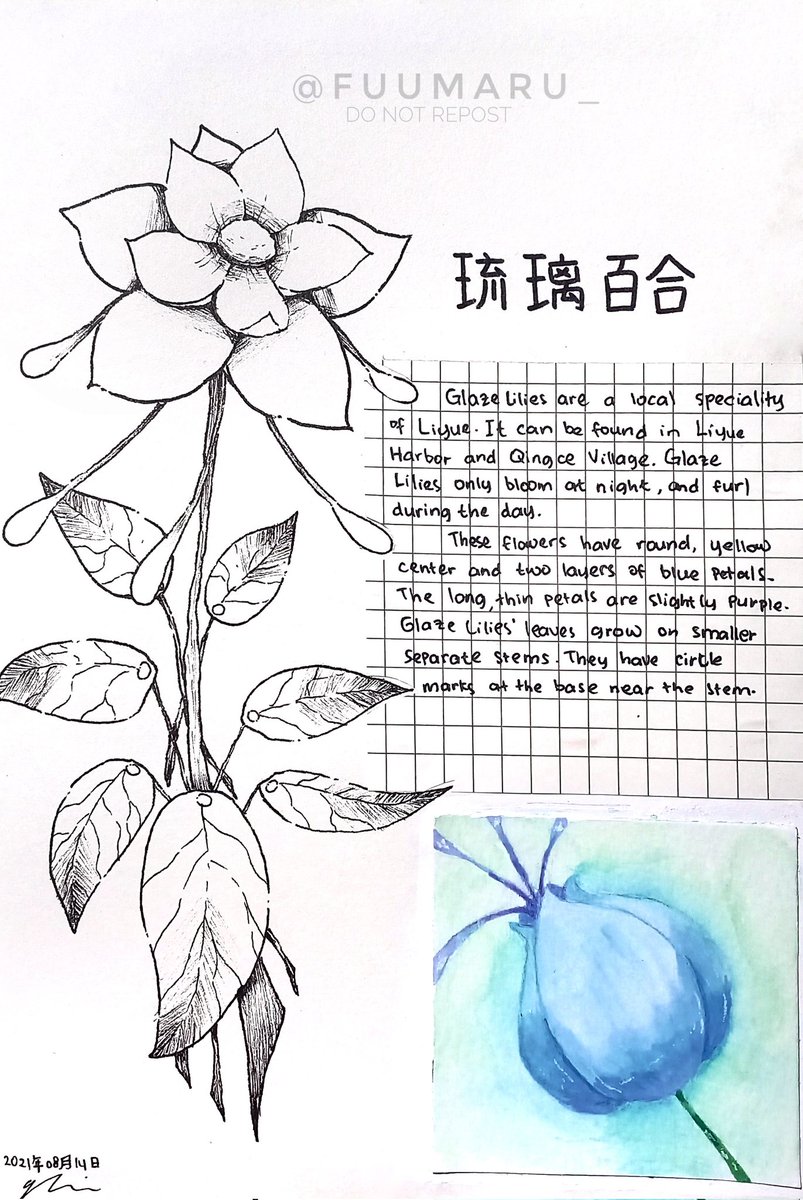 @FUUMARU_
DO NOT REPOST
琉璃百合
Glaze Lilies are a local speciality
of Liyue. It can be found in Liyue
Harbor and Qingce Village. Glaze
Lilies only bloom at night, and furl
during the day.
These flowers have round, yellow
center and two layers of blue petals.
The long, thin petals are slightly purple.
Glaze Lilies' leaves grow on smaller
separate stems. They have circle
marks at the base near the stem.
2021年08月14日